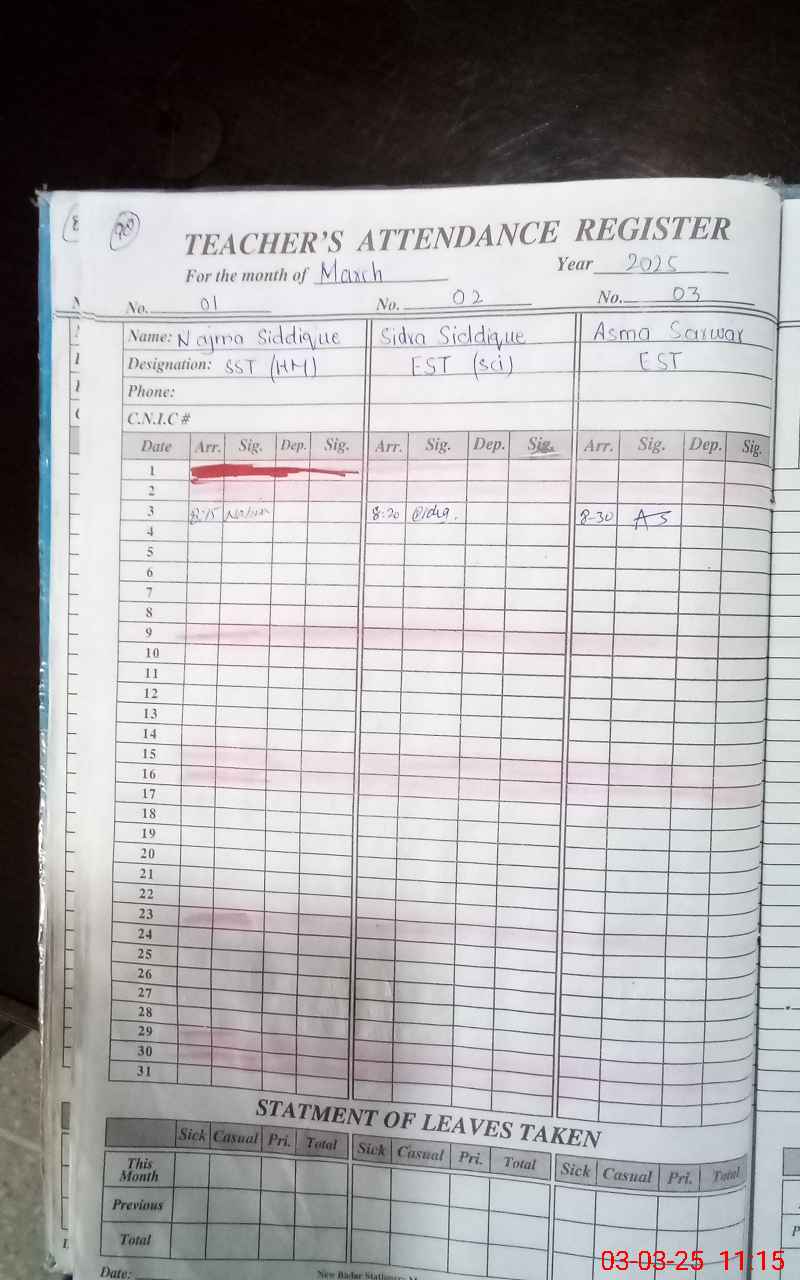 TEACHER'S ATTENDANCE REGISTER
For the month of March Year 2025
No. 01 No. 02 No. 03
Name: Najma Siddique Sidra Siddique Asma Sarwar
Designation: SST (HM) EST (Sci) EST
Phone:
C.N.I.C #
Date Arr. Sig. Dep. Sig. Arr. Sig. Dep. Sig. Arr. Sig. Dep. Sig.
1
2
3 8:15 8:20 Sidra. 8-30 AS
4
5
6
7
8
9
10
11
12
13
14
15
16
17
18
19
20
21
22
23
24
25
26
27
28
29
30
31
STATMENT OF LEAVES TAKEN
Sick Casual Pri. Total Sick Casual Pri. Total Sick Casual Pri. Total
This
Month
Previous
Total
Date:
03-03-25 11:15